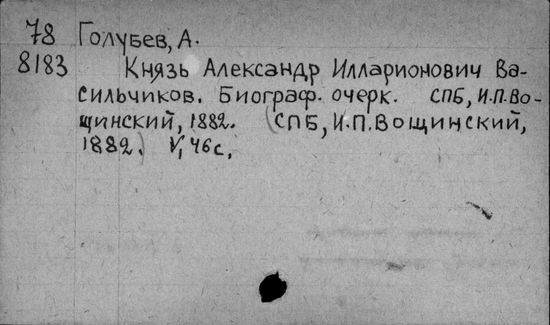 78 Голубев, А.
8183 Князь Александр Илларионович Ва-
сильчиков. Биограф. очерк. СПБ, И.П.Во-
щинский, 1882. (СПБ, И.П.Вощинский,
1882.) V, 46 с.